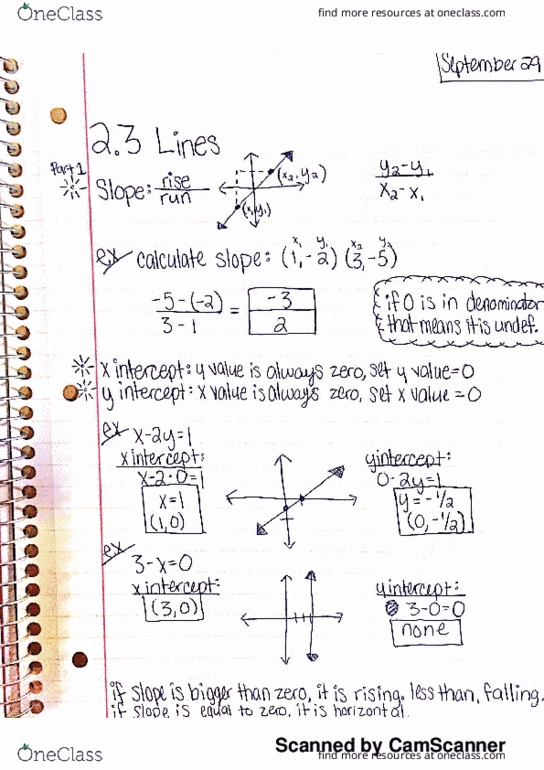 OneClass
find more resources at oneclass.com
September 29
2.3 Lines
Part 1
Slope: rise/run
(x₂, y₂)
(x₁, y₁)
y₂-y₁
x₂-x₁
ex calculate slope: (1,-2) (3,-5)
x₁ y₁ x₂ y₂
-5-(-2) = -3
3-1 2
if 0 is in denominator
that means it is undef.
x intercept: y value is always zero, set y value=0
y intercept: x value is always zero, set x value=0
ex x-2y=1
x intercept:
x-2·0=1
x=1
(1,0)
y intercept:
0-2y=1
y=-1/2
(0,-1/2)
ex
3-x=0
x intercept:
(3,0)
y intercept:
3-0=0
none
if slope is bigger than zero, it is rising. less than, falling.
if slope is equal to zero, it is horizontal.
Scanned by CamScanner
OneClass
find more resources at oneclass.com